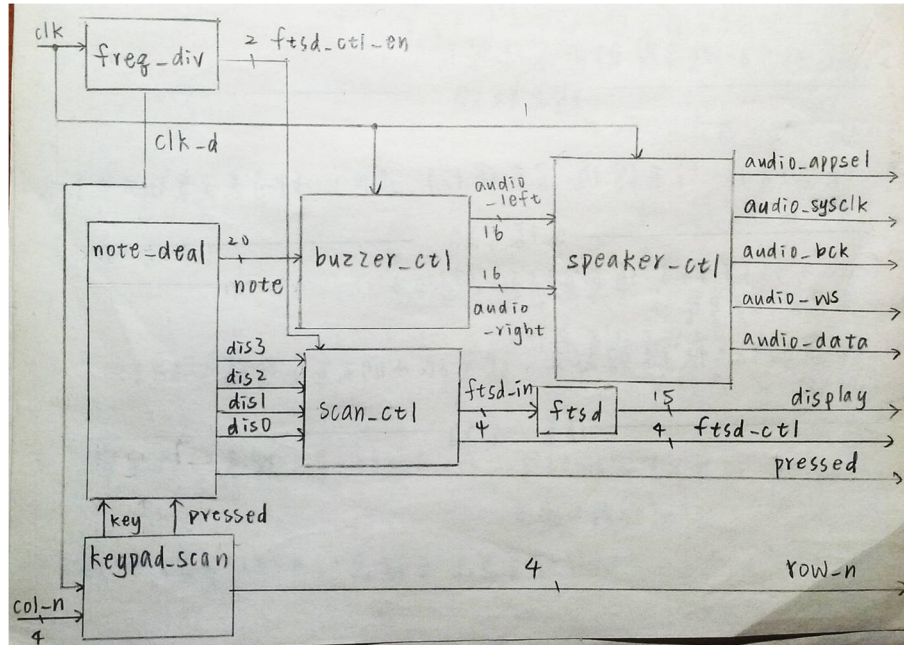 clk
freq_div
2 ftsd_ctl_en
1
clk_d
note_deal
20
note
buzzer_ctl
audio
_left
16
16
audio
_right
speaker_ctl
audio_appsel
audio_sysclk
audio_bck
audio_ws
audio_data
dis3
dis2
dis1
dis0
scan_ctl
ftsd_in
4
ftsd
15
display
4
ftsd_ctl
pressed
key
pressed
keypad_scan
4
row_n
col_n
4